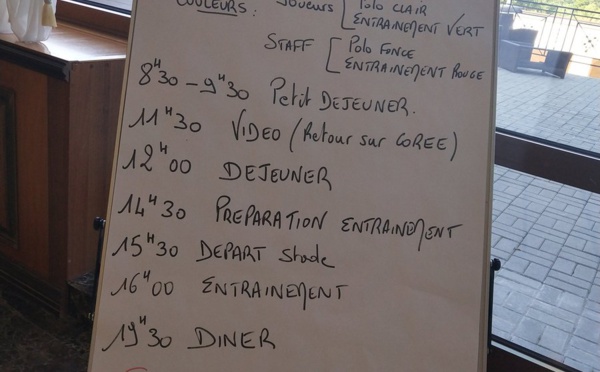 COULEURS : JOUEURS [ POLO CLAIR
ENTRAINEMENT VERT
STAFF [ POLO FONCE
ENTRAINEMENT ROUGE
8H30 - 9H30 Petit DEJEUNER.
11H30 VIDEO (Retour sur COREE)
12H00 DEJEUNER
14H30 PREPARATION ENTRAINEMENT
15H30 DEPART Stade
16H00 ENTRAINEMENT
19H30 DINER